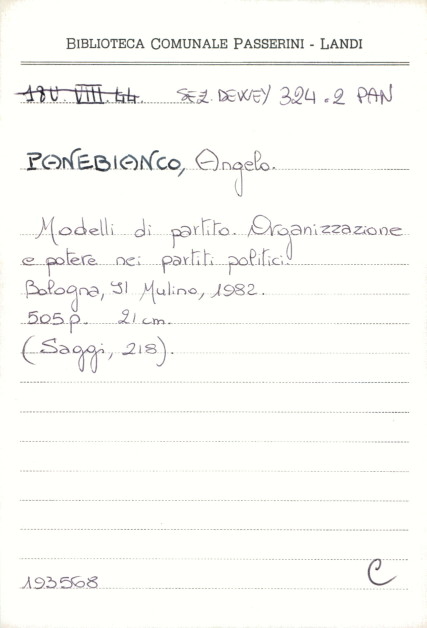 BIBLIOTECA COMUNALE PASSERINI - LANDI
18U. VIII. 44. SEZ. DEWEY 324.2 PAN
PANEBIANCO, Angelo.
Modelli di partito. Organizzazione
e potere nei partiti politici.
Bologna, Il Mulino, 1982.
505 p. 21 cm.
(Saggi, 218).
193568 C